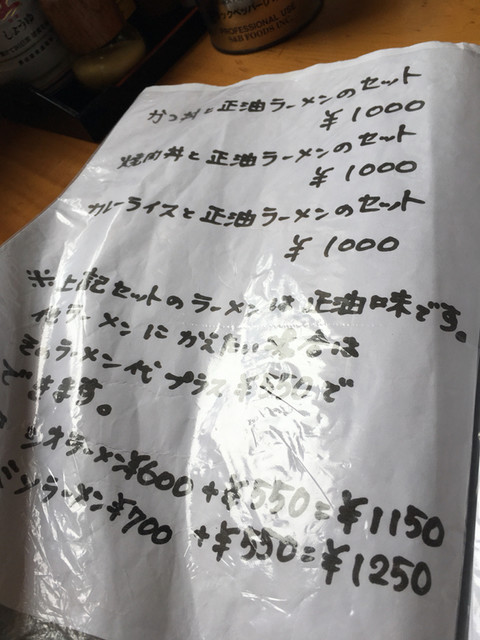 しょうゆ
PROFESSIONAL USE
S&B FOODS INC.
かつ丼と正油ラーメンのセット
¥1000
焼肉丼と正油ラーメンのセット
¥1000
カレーライスと正油ラーメンのセット
¥1000
※上記セットのラーメンは正油味です。
他ラーメンにかえたい場合は
そのラーメン代プラス¥550で
できます。
ラーメン¥600+¥550=¥1150
ラーメン¥700+¥550=¥1250